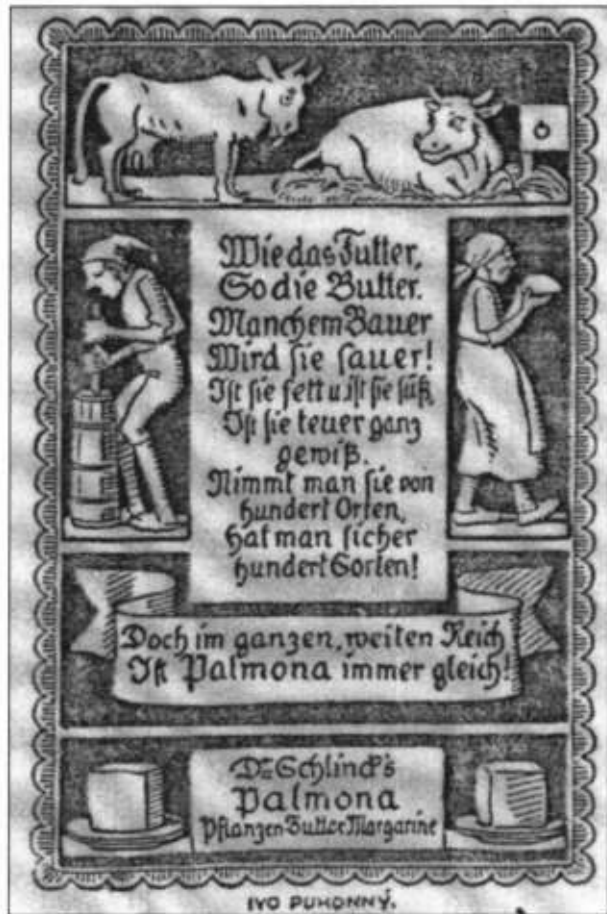 Wie das Futter,
So die Butter.
Manchem Bauer
Wird sie sauer!
Ist sie fett u. ist sie süß,
Ist sie teuer ganz
gewiß.
Nimmt man sie von
hundert Orten,
Hat man sicher
hundert Sorten!
Doch im ganzen, weiten Reich
Ist Palmona immer gleich!
Dr. Schlinck's
Palmona
Pflanzen-Butter-Margarine
IVO PUHONNÝ.